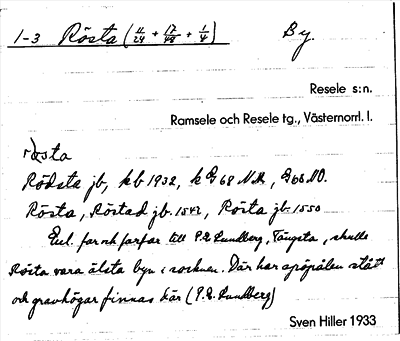 1-3 Rösta (11/24 + 17/48 + 1/4) By.
Resele s:n.
Ramsele och Resele tg., Västernorrl. l.
rösta
Rödsta jb, kb 1932, k G 68 NM, G 68 NO.
Rösta, Röstad jb. 1542, Rösta jb 1550
Enl. far och farfar till P.E. Lundberg, Tängsta, skulle
Rösta vara älsta byn i socknen. Där har spöpålen stått
och gravhögar finnas där (P.E. Lundberg)
Sven Hiller 1933